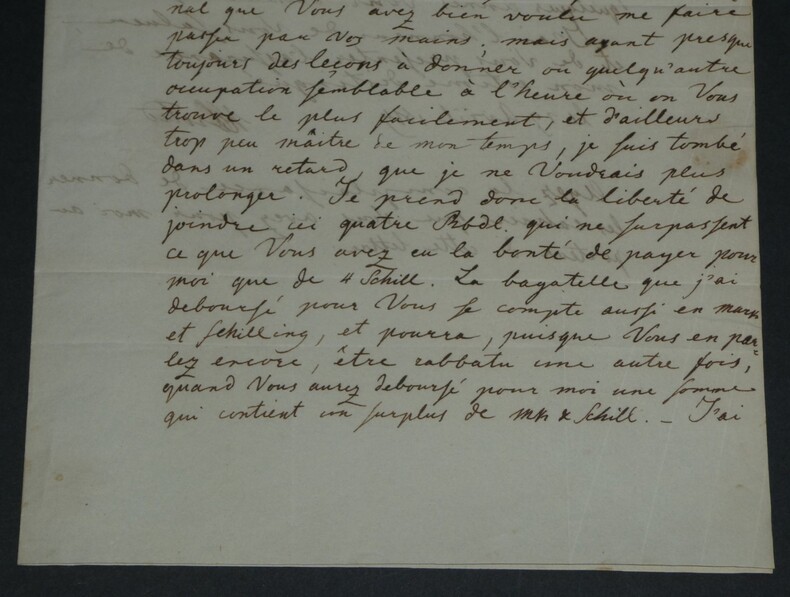 nal que Vous avez bien voulu me faire
passer par vos mains, mais ayant presque
toujours des leçons à donner ou quelqu'autre
occupation semblable à l'heure où on Vous
trouve le plus facilement, et d'ailleurs
trop peu mâitre de mon temps, je suis tombé
dans un retard que je ne Voudrais plus
prolonger. Je prend donc la liberté de
joindre ici quatre Rbdl. qui ne surpassent
ce que Vous avez eu la bonté de payer pour
moi que de 4 Schill. La bagatelle que j'ai
deboursé pour Vous se compte aussi en mark
et schilling, et pourra, puisque Vous en par-
lez encore, être rabbatu une autre fois,
quand Vous aurez deboursé pour moi une somme
qui contient un surplus de mk & Schill. — J'ai